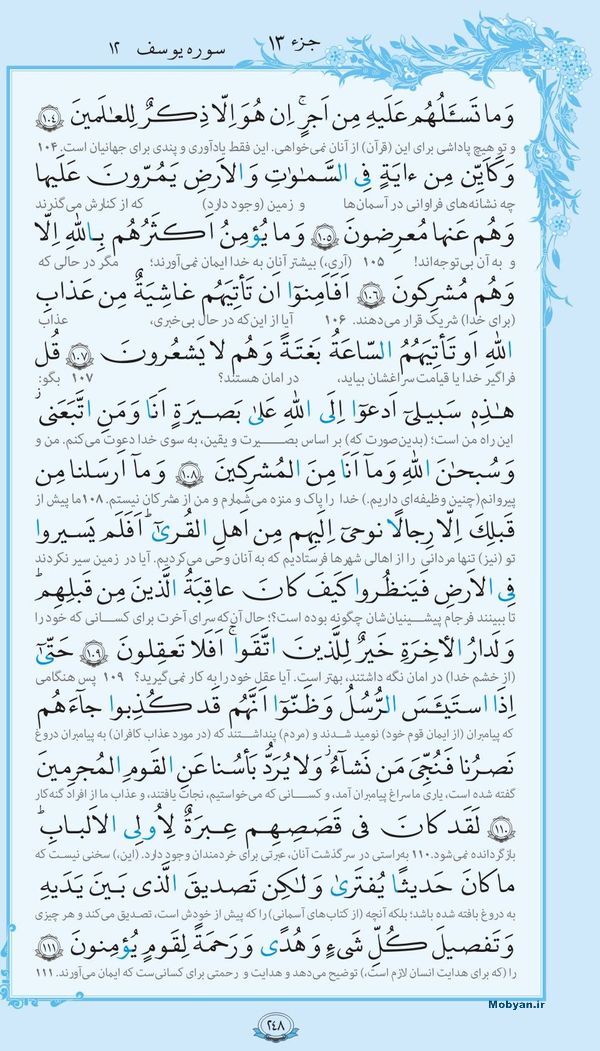 جزء ۱۳
سوره یوسف ۱۲
وَما تَسـَٔلُهُم عَلَيهِ مِن اَجرٍ ۚ اِن هُوَ اِلّا ذِكرٌ لِلعـٰلَمينَ ۱۰۴
و تو هیچ پاداشی برای این (قرآن) از آنان نمی‌خواهی. این فقط یادآوری و پندی برای جهانیان است. ۱۰۴
وَكَاَيِّن مِن ءايَةٍ فِى السَّمـٰوٰتِ وَالاَرضِ يَمُرّونَ عَلَيها
چه نشانه‌های فراوانی در آسمان‌ها و زمین (وجود دارد) که از کنارش می‌گذرند
وَهُم عَنها مُعرِضونَ ۱۰۵ وَما يُؤمِنُ اَكثَرُهُم بِاللهِ اِلّا
و به آن بی‌توجه‌اند! ۱۰۵ (آری،) بیشتر آنان به خدا ایمان نمی‌آورند؛ مگر در حالی که
وَهُم مُشرِكونَ ۱۰۶ اَفَاَمِنوا اَن تَأتِيَهُم غاشِيَةٌ مِن عَذابِ
(برای خدا) شریک قرار می‌دهند. ۱۰۶ آیا از این‌که در حال بی‌خبری، عذاب
اللهِ اَو تَأتِيَهُمُ السّاعَةُ بَغتَةً وَهُم لا يَشعُرونَ ۱۰۷ قُل
فراگیر خدا یا قیامت سراغشان بیاید، در امان هستند؟ ۱۰۷ بگو:
هـٰذِهِ سَبيلى اَدعوا اِلَى اللهِ ۚ عَلىٰ بَصيرَةٍ اَنَا وَمَنِ اتَّبَعَنى
این راه من است؛ (بدین‌صورت که) بر اساس بصیرت و یقین، به سوی خدا دعوت می‌کنم. من و
وَسُبحـٰنَ اللهِ وَما اَنَا مِنَ المُشرِكينَ ۱۰۸ وَما اَرسَلنا مِن
پیروانم (چنین وظیفه‌ای داریم.) خدا را پاک و منزه می‌شمارم و من از مشرکان نیستم. ۱۰۸ ما پیش از
قَبلِكَ اِلّا رِجالًا نوحى اِلَيهِم مِن اَهلِ القُرىٰ ۗ اَفَلَم يَسيروا
تو (نیز) تنها مردانی را از اهالی شهرها فرستادیم که به آنان وحی می‌کردیم. آیا در زمین سیر نکردند
فِى الاَرضِ فَيَنظُروا كَيفَ كانَ عاقِبَةُ الَّذينَ مِن قَبلِهِم ۗ
تا ببینند فرجام پیشینیان‌شان چگونه بوده است؟؛ حال آن‌که سرای آخرت برای کسانی که خود را
وَلَدارُ الاٰخِرَةِ خَيرٌ لِلَّذينَ اتَّقَوا ۚ اَفَلا تَعقِلونَ ۱۰۹ حَتّىٰ
(از خشم خدا) در امان نگه داشتند، بهتر است. آیا عقل خود را به کار نمی‌گیرید؟ ۱۰۹ پس هنگامی
اِذَا استَيـَٔسَ الرُّسُلُ وَظَنّوا اَنَّهُم قَد كُذِبوا جاءَهُم
که پیامبران (از ایمان قوم خود) نومید شدند و (مردم) پنداشتند که (در مورد عذاب کافران) به پیامبران دروغ
نَصرُنا فَنُجِّىَ مَن نَشاءُ ۖ وَلا يُرَدُّ بَأسُنا عَنِ القَومِ المُجرِمينَ
گفته شده است، یاری ما سراغ پیامبران آمد، و کسانی که می‌خواستیم، نجات یافتند، و عذاب ما از افراد گنه‌کار
۱۱۰ لَقَد كانَ فى قَصَصِهِم عِبرَةٌ لِاُولِى الاَلبابِ ۗ
بازگردانده نمی‌شود. ۱۱۰ به‌راستی در سرگذشت آنان، عبرتی برای خردمندان وجود دارد. (این،) سخنی نیست که
ما كانَ حَديثًا يُفتَرىٰ وَلـٰكِن تَصديقَ الَّذى بَينَ يَدَيهِ
به دروغ بافته شده باشد؛ بلکه آنچه (از کتاب‌های آسمانی) را که پیش از خودش است، تصدیق می‌کند و هر چیزی
وَتَفصيلَ كُلِّ شَىءٍ وَهُدًى وَرَحمَةً لِقَومٍ يُؤمِنونَ ۱۱۱
را (که برای هدایت انسان لازم است،) توضیح می‌دهد و هدایت و رحمتی برای کسانی‌ست که ایمان می‌آورند. ۱۱۱
۲۴۸
Mobyan.ir